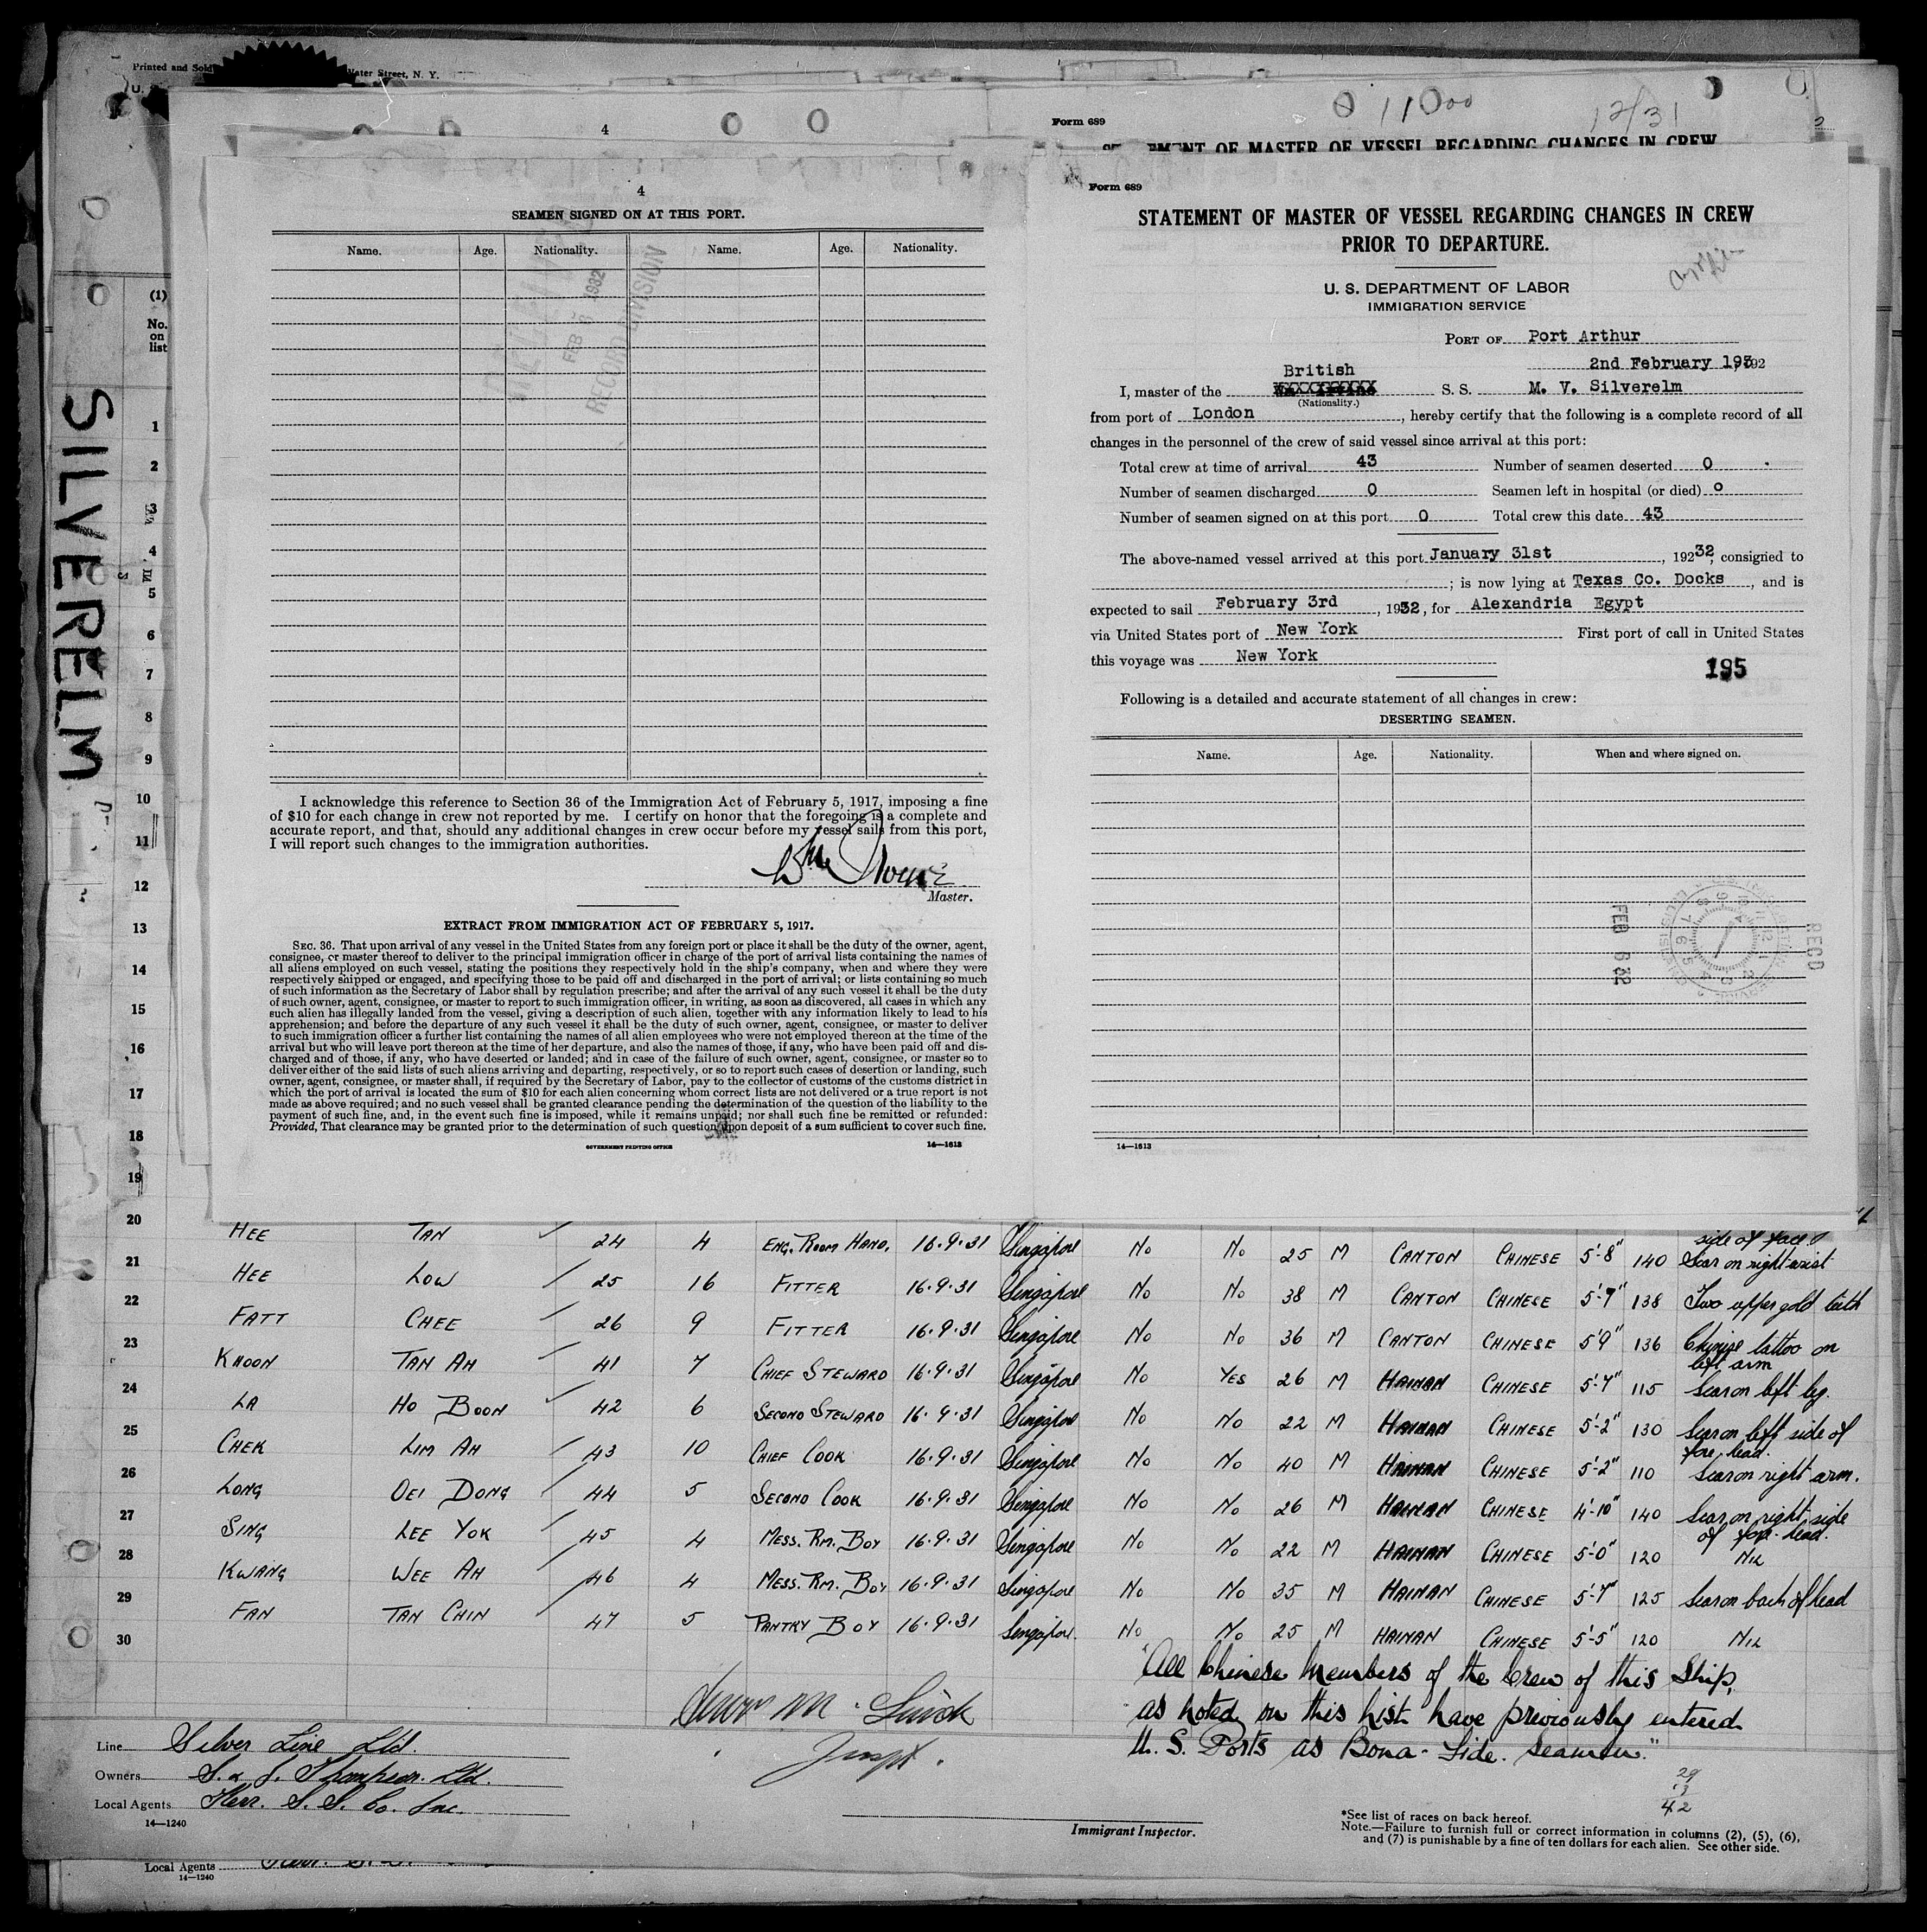 Printed and Sold
Water Street, N. Y.
U. S.
4
Form 689
11000
12/31
STATEMENT OF MASTER OF VESSEL REGARDING CHANGES IN CREW
SILVERELM
(1)
No.
on
list
1
2
3
4
5
6
7
8
9
10
11
12
13
14
15
16
17
18
19
20
21
22
23
24
25
26
27
28
29
30
4
SEAMEN SIGNED ON AT THIS PORT.
Name. Age. Nationality. Name. Age. Nationality.
FEB 6 1932
RECORD DIVISION
I acknowledge this reference to Section 36 of the Immigration Act of February 5, 1917, imposing a fine
of $10 for each change in crew not reported by me. I certify on honor that the foregoing is a complete and
accurate report, and that, should any additional changes in crew occur before my vessel sails from this port,
I will report such changes to the immigration authorities.
Wm Irvine
Master.
EXTRACT FROM IMMIGRATION ACT OF FEBRUARY 5, 1917.
SEC. 36. That upon arrival of any vessel in the United States from any foreign port or place it shall be the duty of the owner, agent,
consignee, or master thereof to deliver to the principal immigration officer in charge of the port of arrival lists containing the names of
all aliens employed on such vessel, stating the positions they respectively hold in the ship's company, when and where they were
respectively shipped or engaged, and specifying those to be paid off and discharged in the port of arrival; or lists containing so much
of such information as the Secretary of Labor shall by regulation prescribe; and after the arrival of any such vessel it shall be the duty
of such owner, agent, consignee, or master to report to such immigration officer, in writing, as soon as discovered, all cases in which any
such alien has illegally landed from the vessel, giving a description of such alien, together with any information likely to lead to his
apprehension; and before the departure of any such vessel it shall be the duty of such owner, agent, consignee, or master to deliver
to such immigration officer a further list containing the names of all alien employees who were not employed thereon at the time of the
arrival but who will leave port thereon at the time of her departure, and also the names of those, if any, who have been paid off and dis-
charged and of those, if any, who have deserted or landed; and in case of the failure of such owner, agent, consignee, or master so to
deliver either of the said lists of such aliens arriving and departing, respectively, or so to report such cases of desertion or landing, such
owner, agent, consignee, or master shall, if required by the Secretary of Labor, pay to the collector of customs of the customs district in
which the port of arrival is located the sum of $10 for each alien concerning whom correct lists are not delivered or a true report is not
made as above required; and no such vessel shall be granted clearance pending the determination of the question of the liability to the
payment of such fine, and, in the event such fine is imposed, while it remains unpaid; nor shall such fine be remitted or refunded:
Provided, That clearance may be granted prior to the determination of such question upon deposit of a sum sufficient to cover such fine.
GOVERNMENT PRINTING OFFICE 14—1613
Form 689
STATEMENT OF MASTER OF VESSEL REGARDING CHANGES IN CREW
PRIOR TO DEPARTURE.
U. S. DEPARTMENT OF LABOR
IMMIGRATION SERVICE
PORT OF Port Arthur
2nd February 193, 192
British
I, master of the S. S. M. V. Silverelm
(Nationality.)
from port of London, hereby certify that the following is a complete record of all
changes in the personnel of the crew of said vessel since arrival at this port:
Total crew at time of arrival 43 Number of seamen deserted 0
Number of seamen discharged 0 Seamen left in hospital (or died) 0
Number of seamen signed on at this port 0 Total crew this date 43
The above-named vessel arrived at this port January 31st, 19232, consigned to
; is now lying at Texas Co. Docks, and is
expected to sail February 3rd, 1932, for Alexandria Egypt
via United States port of New York First port of call in United States
this voyage was New York
195
Following is a detailed and accurate statement of all changes in crew:
DESERTING SEAMEN.
Name. Age. Nationality. When and where signed on.
FEB 6 32
RECD
14—1613
side of face
HEE TAN 24 4 ENG. ROOM HAND. 16.9.31 Singapore No No 25 M CANTON CHINESE 5'-8" 140 Scar on right wrist
HEE LOW 25 16 FITTER 16.9.31 Singapore No No 38 M CANTON CHINESE 5'-7" 138 Two upper gold teeth
FATT CHEE 26 9 FITTER 16.9.31 Singapore No No 36 M CANTON CHINESE 5'9" 136 Chinese tattoo on
left arm
KHOON TAN AH 41 7 CHIEF STEWARD 16.9.31 Singapore No YES 26 M HAINAN CHINESE 5'-7" 115 Scar on left leg.
LA HO BOON 42 6 SECOND STEWARD 16.9.31 Singapore No No 22 M HAINAN CHINESE 5'-2" 130 Scar on left side of
fore-head.
CHEK LIM AH 43 10 CHIEF COOK 16.9.31 Singapore No No 40 M HAINAN CHINESE 5'-2" 110 Scar on right arm.
LONG OEI DONG 44 5 SECOND COOK 16.9.31 Singapore No No 26 M HAINAN CHINESE 4'-10" 140 Scar on right side
of fore-head.
SING LEE YOK 45 4 MESS. RM. BOY 16.9.31 Singapore No No 22 M HAINAN CHINESE 5'-0" 120 NIL
KWANG WEE AH 46 4 MESS. RM. BOY 16.9.31 Singapore No No 35 M HAINAN CHINESE 5'-7" 125 Scar on back of head
FAN TAN CHIN 47 5 PANTRY BOY 16.9.31 Singapore. No No 25 M HAINAN CHINESE 5'-5" 120 NIL
"All Chinese Members of the Crew of this Ship,
as noted on this List have previously entered
U. S. Ports as Bona-fide. Seamen."
29
13
42
Line Silver Line Ltd.
Owners S. & J. Thompson. Ltd.
Local Agents Kerr. S. S. Co. Inc.
14—1240
Immigrant Inspector.
*See list of races on back hereof.
Note.—Failure to furnish full or correct information in columns (2), (5), (6),
and (7) is punishable by a fine of ten dollars for each alien. See other side.
Local Agents
14—1240